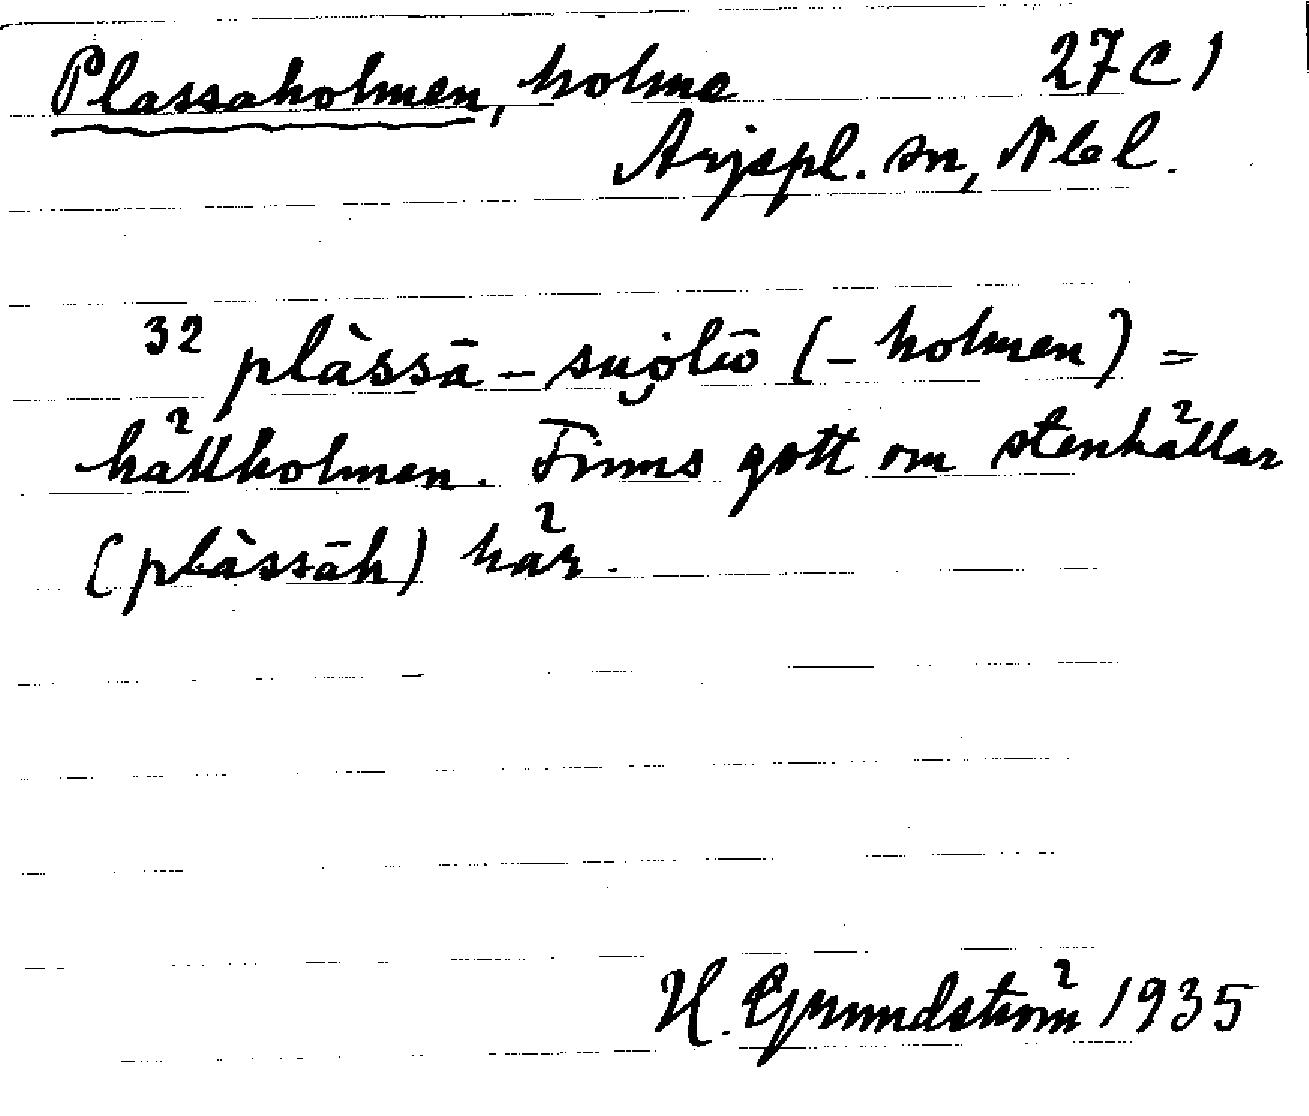 Plassaholmen, holme 27 C 1
Arjepl. sn, Nbl.
32 plàssā-suo̯lō (-holmen) =
hällholmen. Finns gott om stenhällar
(plàssāh) här.
H. Grundström 1935